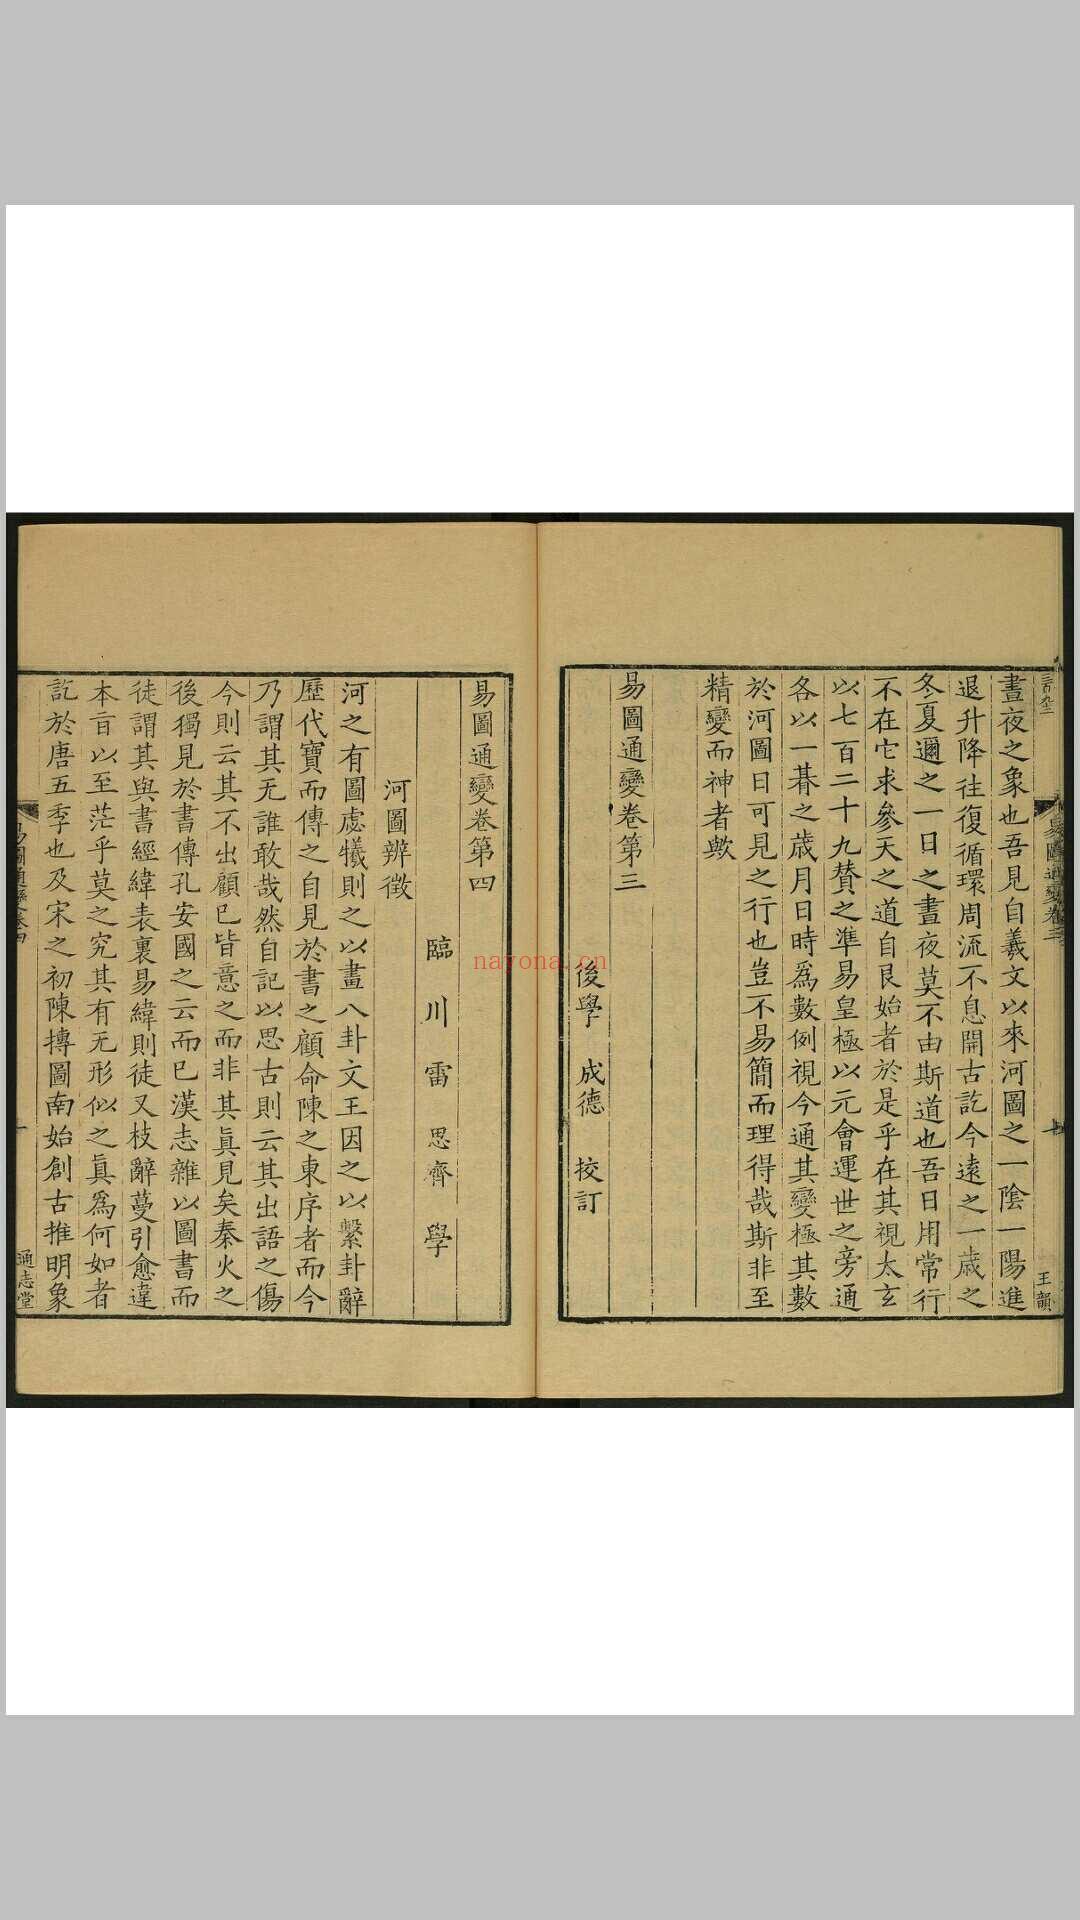 三百九二
易圖通變卷三
王韻
晝夜之象也吾見自羲文以來河圖之一陰一陽進
退升降往復循環周流不息開古訖今遠之一歲之
冬夏邇之一日之晝夜莫不由斯道也吾日用常行
不在它求參天之道自艮始者於是乎在其視太玄
以七百二十九賛之準易皇極以元會運世之旁通
各以一朞之歲月日時爲數例視今通其變極其數
於河圖日可見之行也豈不易簡而理得哉斯非至
精變而神者歟
易圖通變卷第三
後學 成德 挍訂
易圖通變卷第四
臨川雷思齊學
河圖辨徵
河之有圖虙犧則之以畫八卦文王因之以繫卦辭
歷代寶而傳之自見於書之顧命陳之東序者而今
乃謂其无誰敢哉然自記以思古則云其出語之傷
今則云其不出顧巳皆意之而非其眞見矣秦火之
後獨見於書傳孔安國之云而巳漢志雜以圖書而
徒謂其與書經緯表裏易緯則徒又枝辭蔓引愈違
本旨以至茫乎莫之究其有无形似之眞爲何如者
訖於唐五季也及宋之初陳摶圖南始創古推明象
易圖通變卷四
一
通志堂
nayona.cn